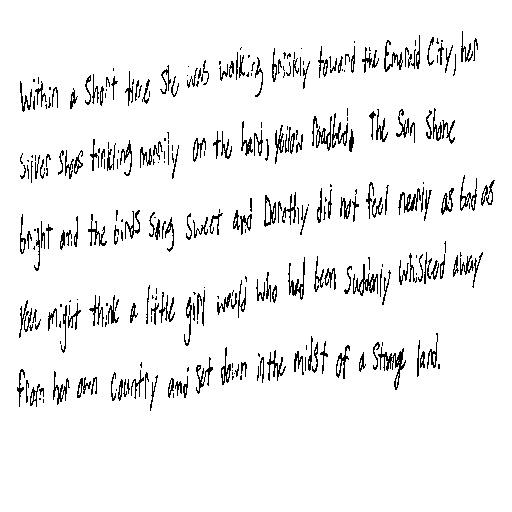 Within a short time she was walking briskly toward the Emerald City, her
silver shoes tinkling merrily on the hard, yellow roadbed. The sun shone
bright and the birds sang sweet and Dorothy did not feel nearly as bad as
you might think a little girl would who had been suddenly whisked away
from her own country and set down in the midst of a strange land.